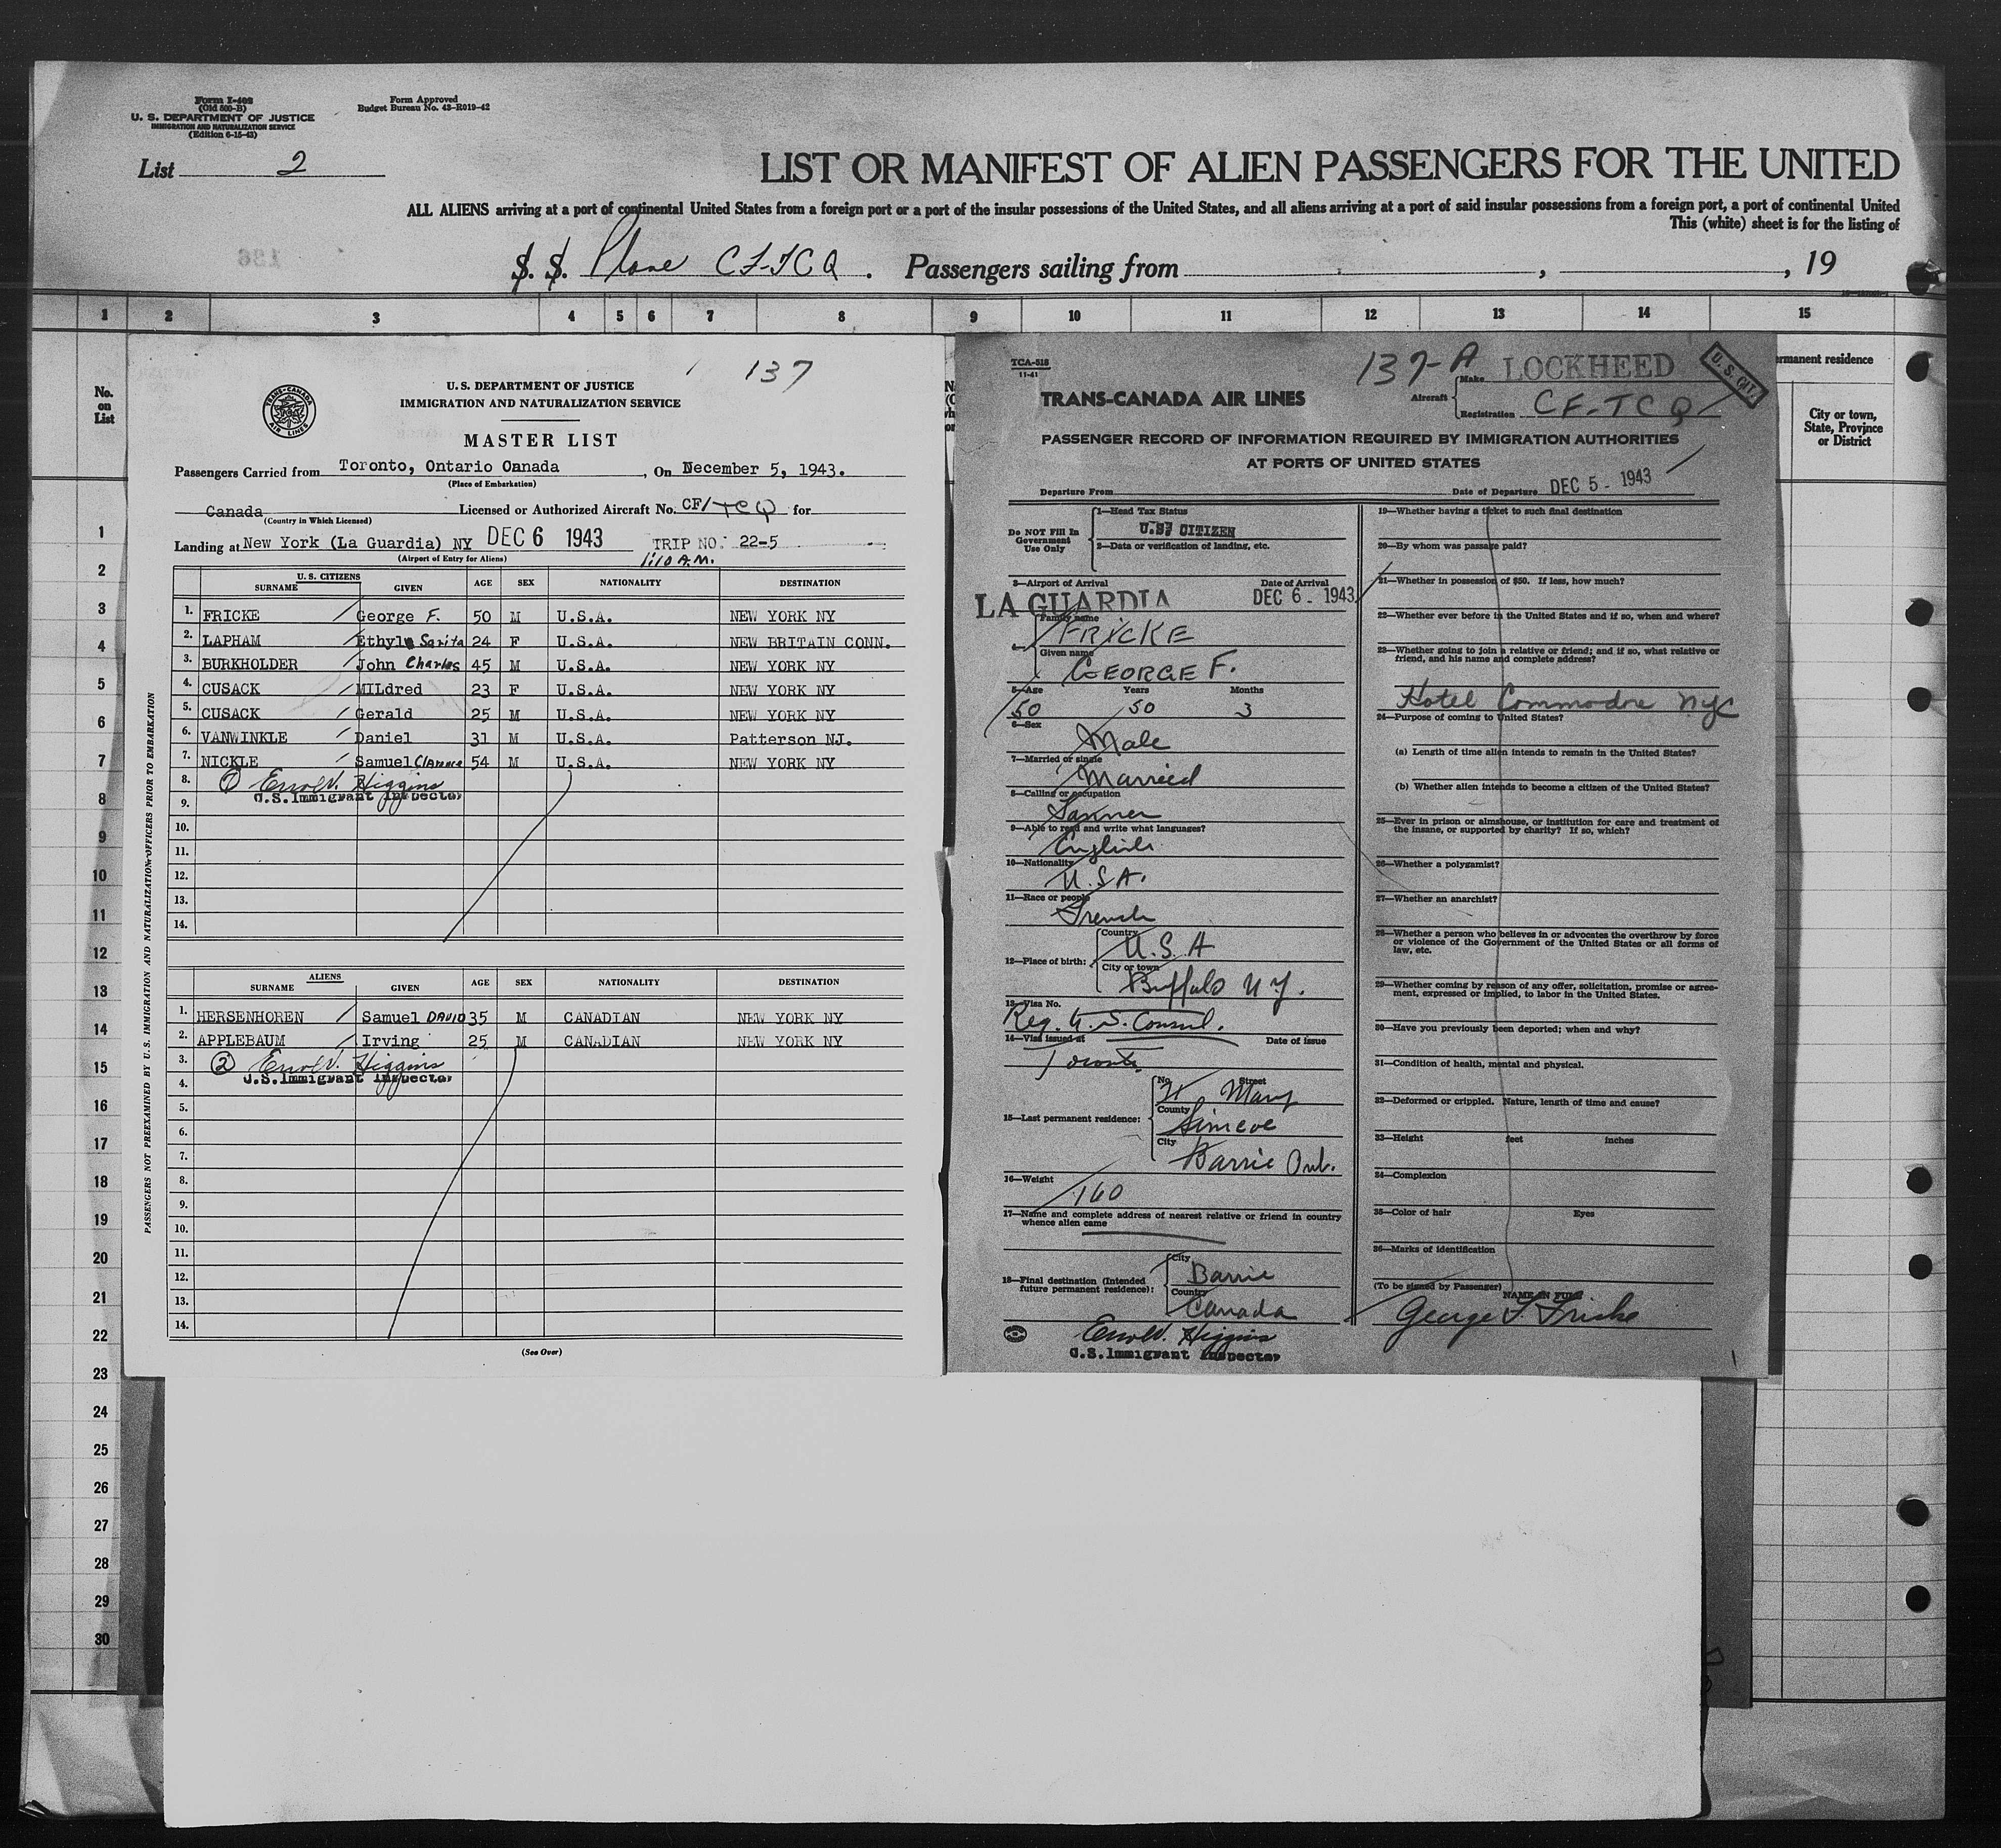 Form I-402
(Old 500-B)
U. S. DEPARTMENT OF JUSTICE
IMMIGRATION AND NATURALIZATION SERVICE
(Edition 6-15-43)
Form Approved
Budget Bureau No. 43-R019-42
List 2
LIST OR MANIFEST OF ALIEN PASSENGERS FOR THE UNITED
ALL ALIENS arriving at a port of continental United States from a foreign port or a port of the insular possessions of the United States, and all aliens arriving at a port of said insular possessions from a foreign port, a port of continental United
This (white) sheet is for the listing of
S. S. Plane CF-TCQ . Passengers sailing from , , 19
1 2 3 4 5 6 7 8 9 10 11 12 13 14 15
No. on List
1
2
3
4
5
6
7
8
9
10
11
12
13
14
15
16
17
18
19
20
21
22
23
24
25
26
27
28
29
30
rmanent residence
City or town,
State, Province
or District
137
TRANS-CANADA AIR LINES
U. S. DEPARTMENT OF JUSTICE
IMMIGRATION AND NATURALIZATION SERVICE
MASTER LIST
Passengers Carried from Toronto, Ontario Canada , On December 5, 1943.
(Place of Embarkation)
Canada Licensed or Authorized Aircraft No. CF/TCQ for
(Country in Which Licensed)
Landing at New York (La Guardia) NY DEC 6 1943 TRIP NO. 22-5
(Airport of Entry for Aliens) 1:10 A.M.
PASSENGERS NOT PREEXAMINED BY U. S. IMMIGRATION AND NATURALIZATION OFFICERS PRIOR TO EMBARKATION
U. S. CITIZENS
SURNAME GIVEN AGE SEX NATIONALITY DESTINATION
1. FRICKE George F. 50 M U.S.A. NEW YORK NY
2. LAPHAM Ethyle Sarita 24 F U.S.A. NEW BRITAIN CONN.
3. BURKHOLDER John Charles 45 M U.S.A. NEW YORK NY
4. CUSACK MILdred 23 F U.S.A. NEW YORK NY
5. CUSACK Gerald 25 M U.S.A. NEW YORK NY
6. VANWINKLE Daniel 31 M U.S.A. Patterson NJ.
7. NICKLE Samuel Clarence 54 M U.S.A. NEW YORK NY
8. 1 Errol V. Higgins
U.S. Immigrant Inspector
9.
10.
11.
12.
13.
14.
ALIENS
SURNAME GIVEN AGE SEX NATIONALITY DESTINATION
1. HERSENHOREN Samuel DAVID 35 M CANADIAN NEW YORK NY
2. APPLEBAUM Irving 25 M CANADIAN NEW YORK NY
3. 2 Errol V. Higgins
U.S. Immigrant Inspector
4.
5.
6.
7.
8.
9.
10.
11.
12.
13.
14.
(See Over)
TCA-518
11-41
137-A
Aircraft Make LOCKHEED
Registration CF-TCQ
U. S. CIT.
TRANS-CANADA AIR LINES
PASSENGER RECORD OF INFORMATION REQUIRED BY IMMIGRATION AUTHORITIES
AT PORTS OF UNITED STATES
Departure From Date of Departure DEC 5 - 1943
Do NOT Fill In
Government
Use Only
1—Head Tax Status
U.S. CITIZEN
2—Data or verification of landing, etc.
3—Airport of Arrival Date of Arrival
LA GUARDIA DEC 6 - 1943
Family name
FRICKE
Given name
GEORGE F.
5—Age Years Months
50 50 3
6—Sex
Male
7—Married or single
Married
8—Calling or occupation
Tanner
9—Able to read and write what languages?
English
10—Nationality
U.S.A.
11—Race or people
French
12—Place of birth:
Country
U.S.A
City or town
Buffalo N Y.
13—Visa No.
Reg. U.S. Consul.
14—Visa issued at Date of issue
Toronto
15—Last permanent residence:
No. Street
21 Mary
County
Simcoe
City
Barrie Ont.
16—Weight
160
17—Name and complete address of nearest relative or friend in country
whence alien came
18—Final destination (Intended
future permanent residence):
City
Barrie
Country
Canada
Errol V. Higgins
U.S. Immigrant Inspector
19—Whether having a ticket to such final destination
20—By whom was passage paid?
21—Whether in possession of $50. If less, how much?
22—Whether ever before in the United States and if so, when and where?
23—Whether going to join a relative or friend; and if so, what relative or
friend, and his name and complete address?
Hotel Commodore NYC
24—Purpose of coming to United States?
(a) Length of time alien intends to remain in the United States?
(b) Whether alien intends to become a citizen of the United States?
25—Ever in prison or almshouse, or institution for care and treatment of
the insane, or supported by charity? If so, which?
26—Whether a polygamist?
27—Whether an anarchist?
28—Whether a person who believes in or advocates the overthrow by force
or violence of the Government of the United States or all forms of
law, etc.
29—Whether coming by reason of any offer, solicitation, promise or agree-
ment, expressed or implied, to labor in the United States.
30—Have you previously been deported; when and why?
31—Condition of health, mental and physical.
32—Deformed or crippled. Nature, length of time and cause?
33—Height feet inches
34—Complexion
35—Color of hair Eyes
36—Marks of identification
(To be signed by Passenger) NAME IN FULL
George F. Fricke